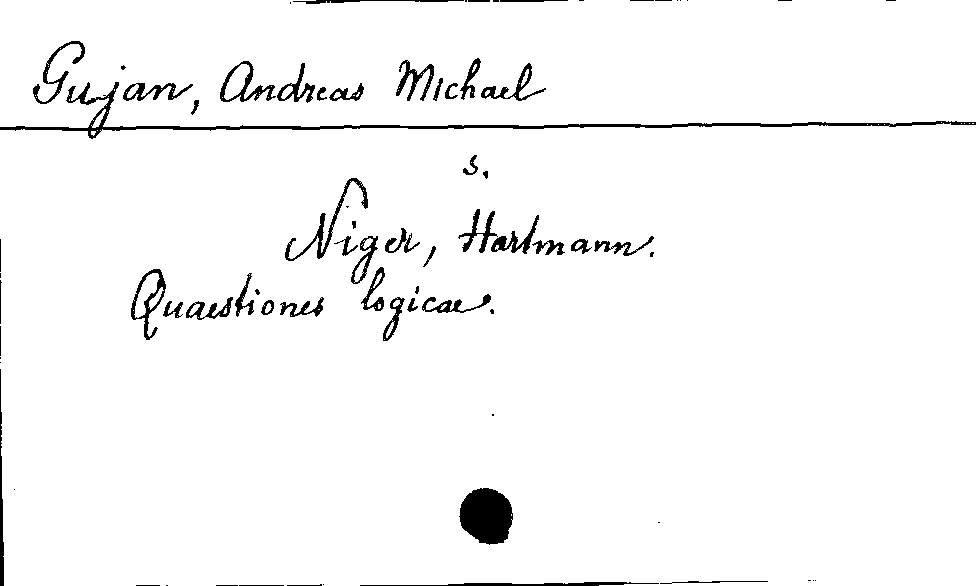 Gujan, Andreas Michael
s.
Niger, Hartmann.
Quaestiones logicae.